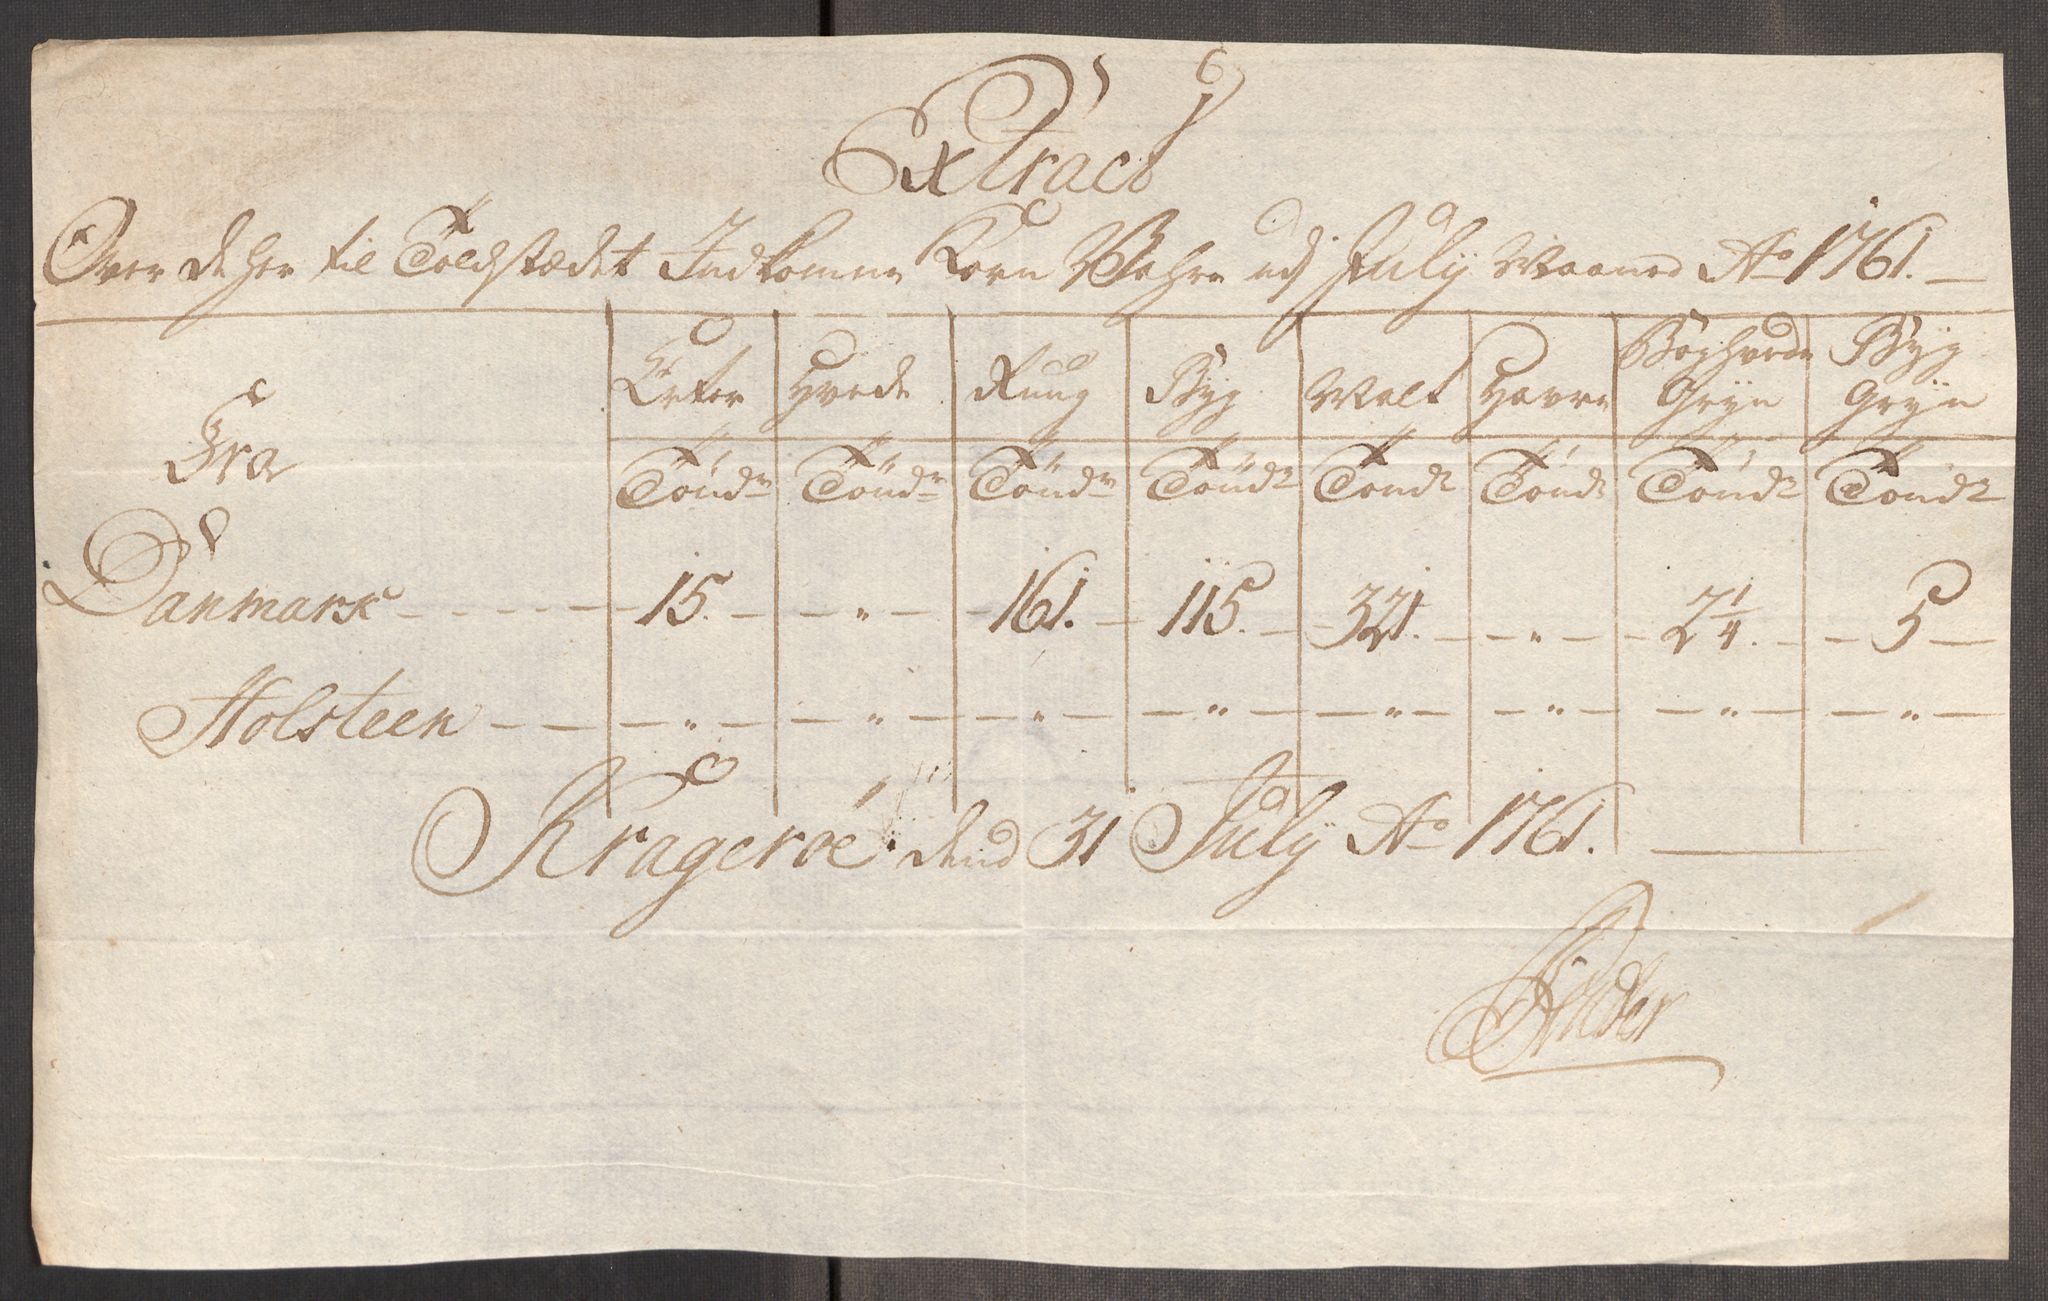 Extract
Over de her til Toldstædet Indkomne Korn Wahre udj July Maaned Ao 1761.
Fra Erter Hvede Ruug Byg Malt Havre Boghvede Gryn Byg Gryn
Tønder Tønder Tønder Tønder Tønd Tønd Tønd Tønd
Danmark 15. " 161. 115. 321. " 2 1/4. 5
Holsteen " " " " " " " "
Krageröe dend 31 July Ao 1761.